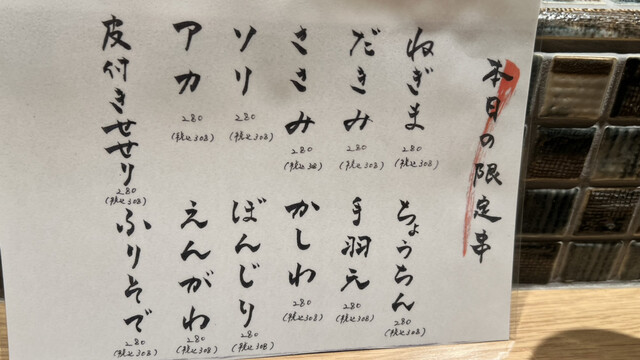 本日の限定串
ねぎま
280
(税込308)
ちょうちん
280
(税込308)
だきみ
280
(税込308)
手羽元
280
(税込308)
ささみ
280
(税込308)
かしわ
280
(税込308)
ソリ
280
(税込308)
ぼんじり
280
(税込308)
アカ
280
(税込308)
えんがわ
280
(税込308)
皮付きせせり
280
(税込308)
ふりそで
280
(税込308)